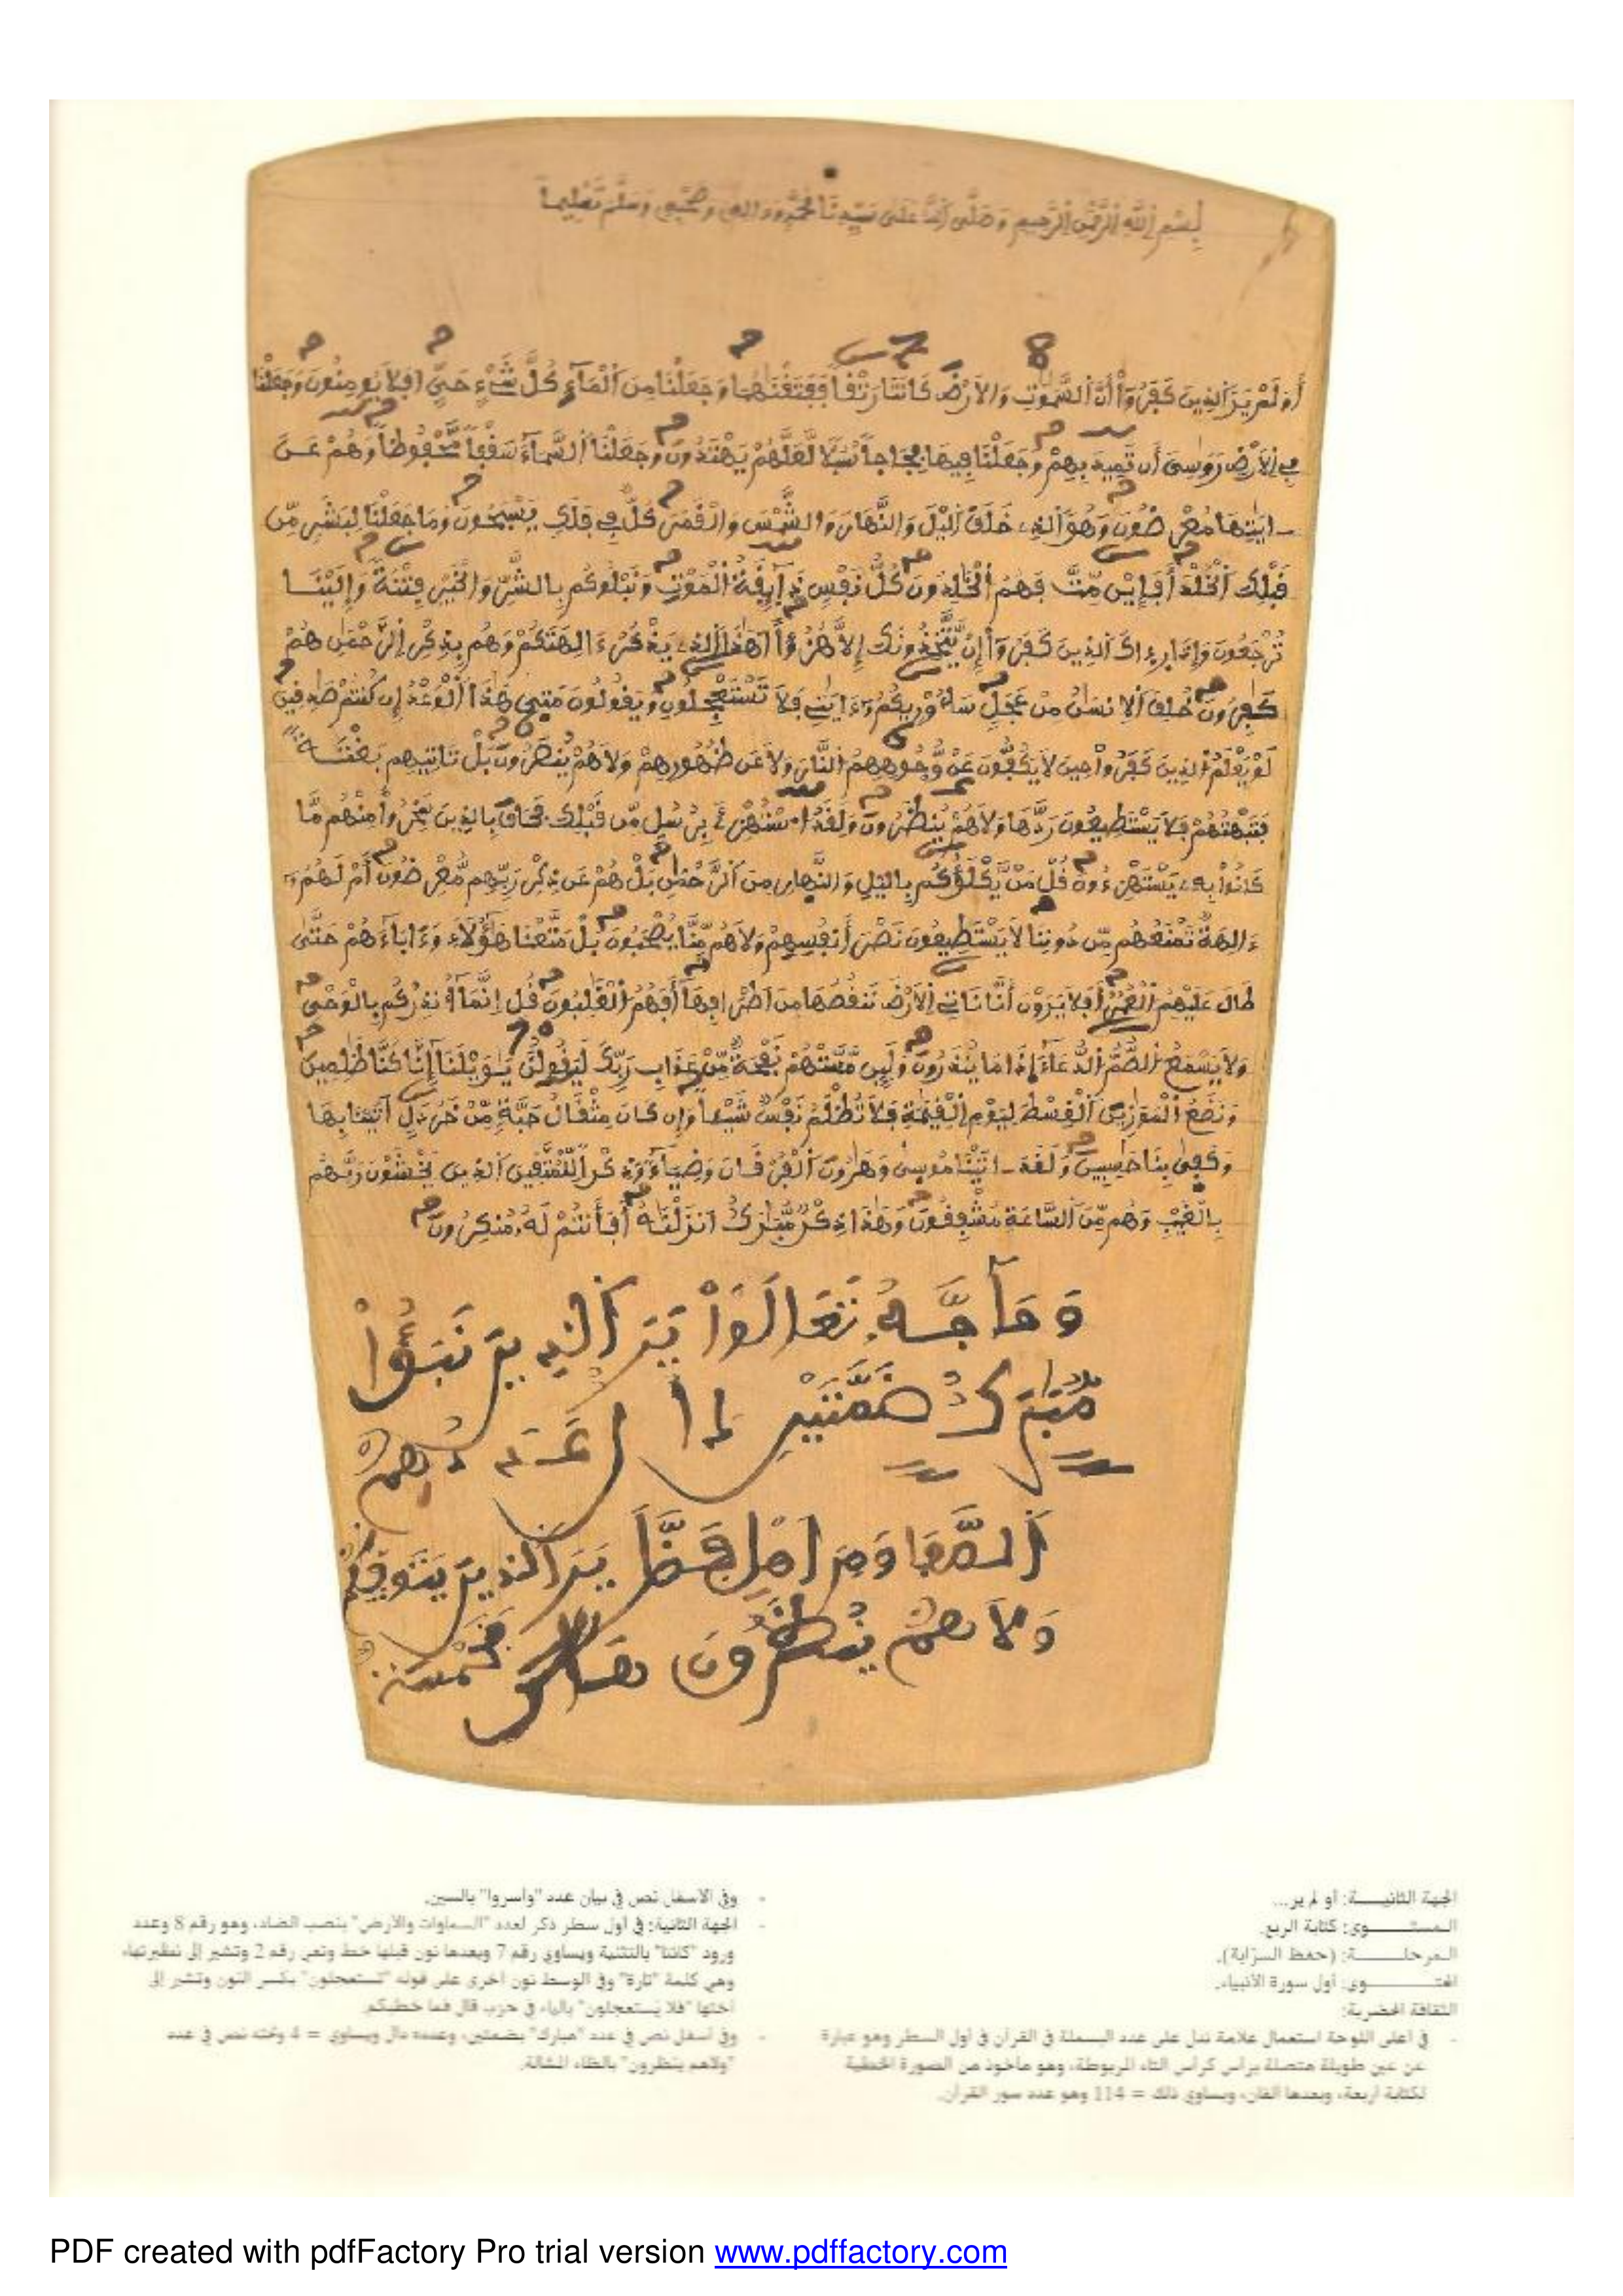 بسم الله الرحمن الرحيم وصلى الله على سيدنا محمد وءاله وصحبه وسلم تسليما
أَوَلَمْ يَرَ الذِينَ كَفَرُوٓاْ أَنَّ السَّمَٰوَٰتِ وَالَارْضَ كَانَتَا رَتْقاً فَفَتَقْنَٰهُمَا وَجَعَلْنَا مِنَ الْمَآءِ كُلَّ شَيْءٍ حَيٍّ افَلَا يُومِنُونَ وَجَعَلْنَا
فِي الَارْضِ رَوَٰسِيَ أَن تَمِيدَ بِهِمْ وَجَعَلْنَا فِيهَا فِجَاجاً سُبُلًا لَّعَلَّهُمْ يَهْتَدُونَ وَجَعَلْنَا السَّمَآءَ سَقْفاً مَّحْفُوظاً وَهُمْ عَنَ
ايَٰتِهَا مُعْرِضُونَ وَهُوَ الذِي خَلَقَ اليْلَ وَالنَّهَارَ وَالشَّمْسَ وَالْقَمَرَ كُلٌّ فِي فَلَكٍ يَسْبَحُونَ وَمَا جَعَلْنَا لِبَشَرٍ مِّن
قَبْلِكَ الْخُلْدَ أَفَإِيْن مِّتَّ فَهُمُ الْخَٰلِدُونَ كُلُّ نَفْسٍ ذَآئِقَةُ الْمَوْتِ وَنَبْلُوكُم بِالشَّرِّ وَالْخَيْرِ فِتْنَةً وَإِلَيْنَا
تُرْجَعُونَ وَإِذَا رِءاكَ الذِينَ كَفَرُوٓاْ إِنْ يَّتَّخِذُونَكَ إِلَّا هُزُؤاً اَهَٰذَا الذِي يَذْكُرُ ءَالِهَتَكُمْ وَهُم بِذِكْرِ الرَّحْمَٰنِ هُمْ
كَٰفِرُونَ خُلِقَ الِانسَٰنُ مِنْ عَجَلٍ سَأُوْرِيكُمُ ءَايَٰتِي فَلَا تَسْتَعْجِلُونِ وَيَقُولُونَ مَتَىٰ هَٰذَا الْوَعْدُ إِن كُنتُمْ صَٰدِقِينَ
لَوْ يَعْلَمُ الذِينَ كَفَرُواْ حِينَ لَا يَكُفُّونَ عَنْ وُّجُوهِهِمُ النَّارَ وَلَا عَن ظُهُورِهِمْ وَلَا هُمْ يُنصَرُونَ بَلْ تَاتِيهِم بَغْتَةً
فَتَبْهَتُهُمْ فَلَا يَسْتَطِيعُونَ رَدَّهَا وَلَا هُمْ يُنظَرُونَ وَلَقَدُ اسْتُهْزِئَ بِرُسُلٍ مِّن قَبْلِكَ فَحَاقَ بِالذِينَ سَخِرُواْ مِنْهُم مَّا
كَانُواْ بِهِ يَسْتَهْزِءُونَ قُلْ مَنْ يَّكْلَؤُكُم بِاليْلِ وَالنَّهَارِ مِنَ الرَّحْمَٰنِ بَلْ هُمْ عَن ذِكْرِ رَبِّهِم مُّعْرِضُونَ أَمْ لَهُمُ
ءَالِهَةٌ تَمْنَعُهُم مِّن دُونِنَا لَا يَسْتَطِيعُونَ نَصْرَ أَنفُسِهِمْ وَلَا هُم مِّنَّا يُصْحَبُونَ بَلْ مَتَّعْنَا هَٰٓؤُلَآءِ وَءَابَآءَهُمْ حَتَّىٰ
طَالَ عَلَيْهِمُ الْعُمُرُ أَفَلَا يَرَوْنَ أَنَّا نَاتِي الَارْضَ نَنقُصُهَا مِنَ اَطْرَافِهَآ أَفَهُمُ الْغَٰلِبُونَ قُلِ انَّمَآ أُنذِرُكُم بِالْوَحْيِ
وَلَا يَسْمَعُ الصُّمُّ الدُّعَآءَ اِذَا مَا يُنذَرُونَ وَلَئِن مَّسَّتْهُمْ نَفْحَةٌ مِّنْ عَذَابِ رَبِّكَ لَيَقُولُنَّ يَٰوَيْلَنَآ إِنَّا كُنَّا ظَٰلِمِينَ
وَنَضَعُ الْمَوَٰزِينَ الْقِسْطَ لِيَوْمِ الْقِيَٰمَةِ فَلَا تُظْلَمُ نَفْسٌ شَيْـاً وَإِن كَانَ مِثْقَالُ حَبَّةٍ مِّنْ خَرْدَلٍ اَتَيْنَا بِهَا
وَكَفَىٰ بِنَا حَٰسِبِينَ وَلَقَدَ اتَيْنَا مُوسَىٰ وَهَٰرُونَ الْفُرْقَانَ وَضِيَآءً وَذِكْراً لِّلْمُتَّقِينَ الذِينَ يَخْشَوْنَ رَبَّهُم
بِالْغَيْبِ وَهُم مِّنَ السَّاعَةِ مُشْفِقُونَ وَهَٰذَا ذِكْرٌ مُّبَٰرَكٌ اَنزَلْنَٰهُ أَفَأَنتُمْ لَهُ مُنكِرُونَ
وَحَآجَّهُ تَعَالَوَاْ الذين
مُّبَٰرَكٌ ضَمَّتَيْنِ
الصَّفَا
وَلَا هُمْ يُنظَرُونَ
الجهة الثانيـــة: أو لم ير...
المستـــوى: كتابة الربع.
المرحلـــة: (حفظ السرّاية).
المحتـــوى: أول سورة الأنبياء.
الثقافة الحضرية:
- في أعلى اللوحة استعمال علامة تدل على عدد البسملة في القرآن في أول السطر وهو عبارة
عن عين طويلة متصلة برأس كرأس التاء المربوطة، وهو مأخوذ من الصورة الخطية
لكتابة أربعة، وبعدها ألفان، ويساوي ذلك = 114 وهو عدد سور القرآن.
- وفي الأسفل نص في بيان عدد "وأسروا" بالسين.
- الجهة الثانية: في أول سطر ذكر لعدد "السماوات والأرض" بنصب الضاد، وهو رقم 8 وعدد
ورود "كانتا" بالتثنية ويساوي رقم 7 وبعدها نون قبلها خط وتعني رقم 2 وتشير إلى نظيرتها،
وهي كلمة "تارة" وفي الوسط نون أخرى على قوله "تستعجلون" بكسر النون وتشير إلى
أختها "فلا يستعجلون" بالياء في حزب قال فما خطبكم.
- وفي أسفل نص في عدد "مبارك" بضمتين، وعدده دال ويساوي = 4 وتحته نص في عدد
"ولاهم ينظرون" بالظاء المشالة.
PDF created with pdfFactory Pro trial version www.pdffactory.com